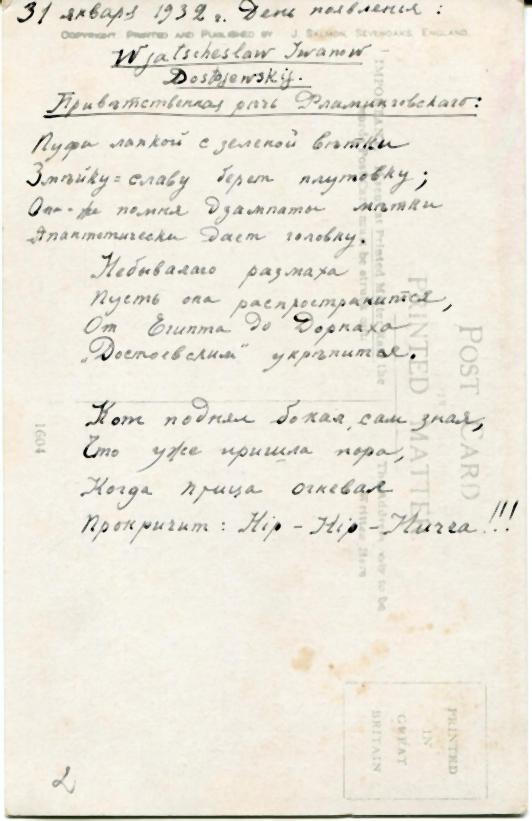 31 января 1932 г. День появления:
COPYRIGHT. PRINTED AND PUBLISHED BY J. SALMON, SEVENOAKS, ENGLAND.
Wjatscheslaw Iwanow
Dostojewskij.
Привѣтственная рѣчь Фламинговскаго:
Пуфа лапкой с зеленой вѣтки
Змѣйку=славу берет плутовку;
Она-же помня Дзампаты мѣтки
Апантетически дает головку.
Небывалаго размаха
Пусть она распространится,
От Египта до Дорпаха
"Достоевским" укрѣпится.
Кот поднял бокал, сам зная,
Что уже пришла пора,
Когда птица огневая
Прокричит: Hip - Hip - Hurra!!!
POST CARD
PRINTED MATTER
1604
PRINTED
IN
GREAT
BRITAIN
2